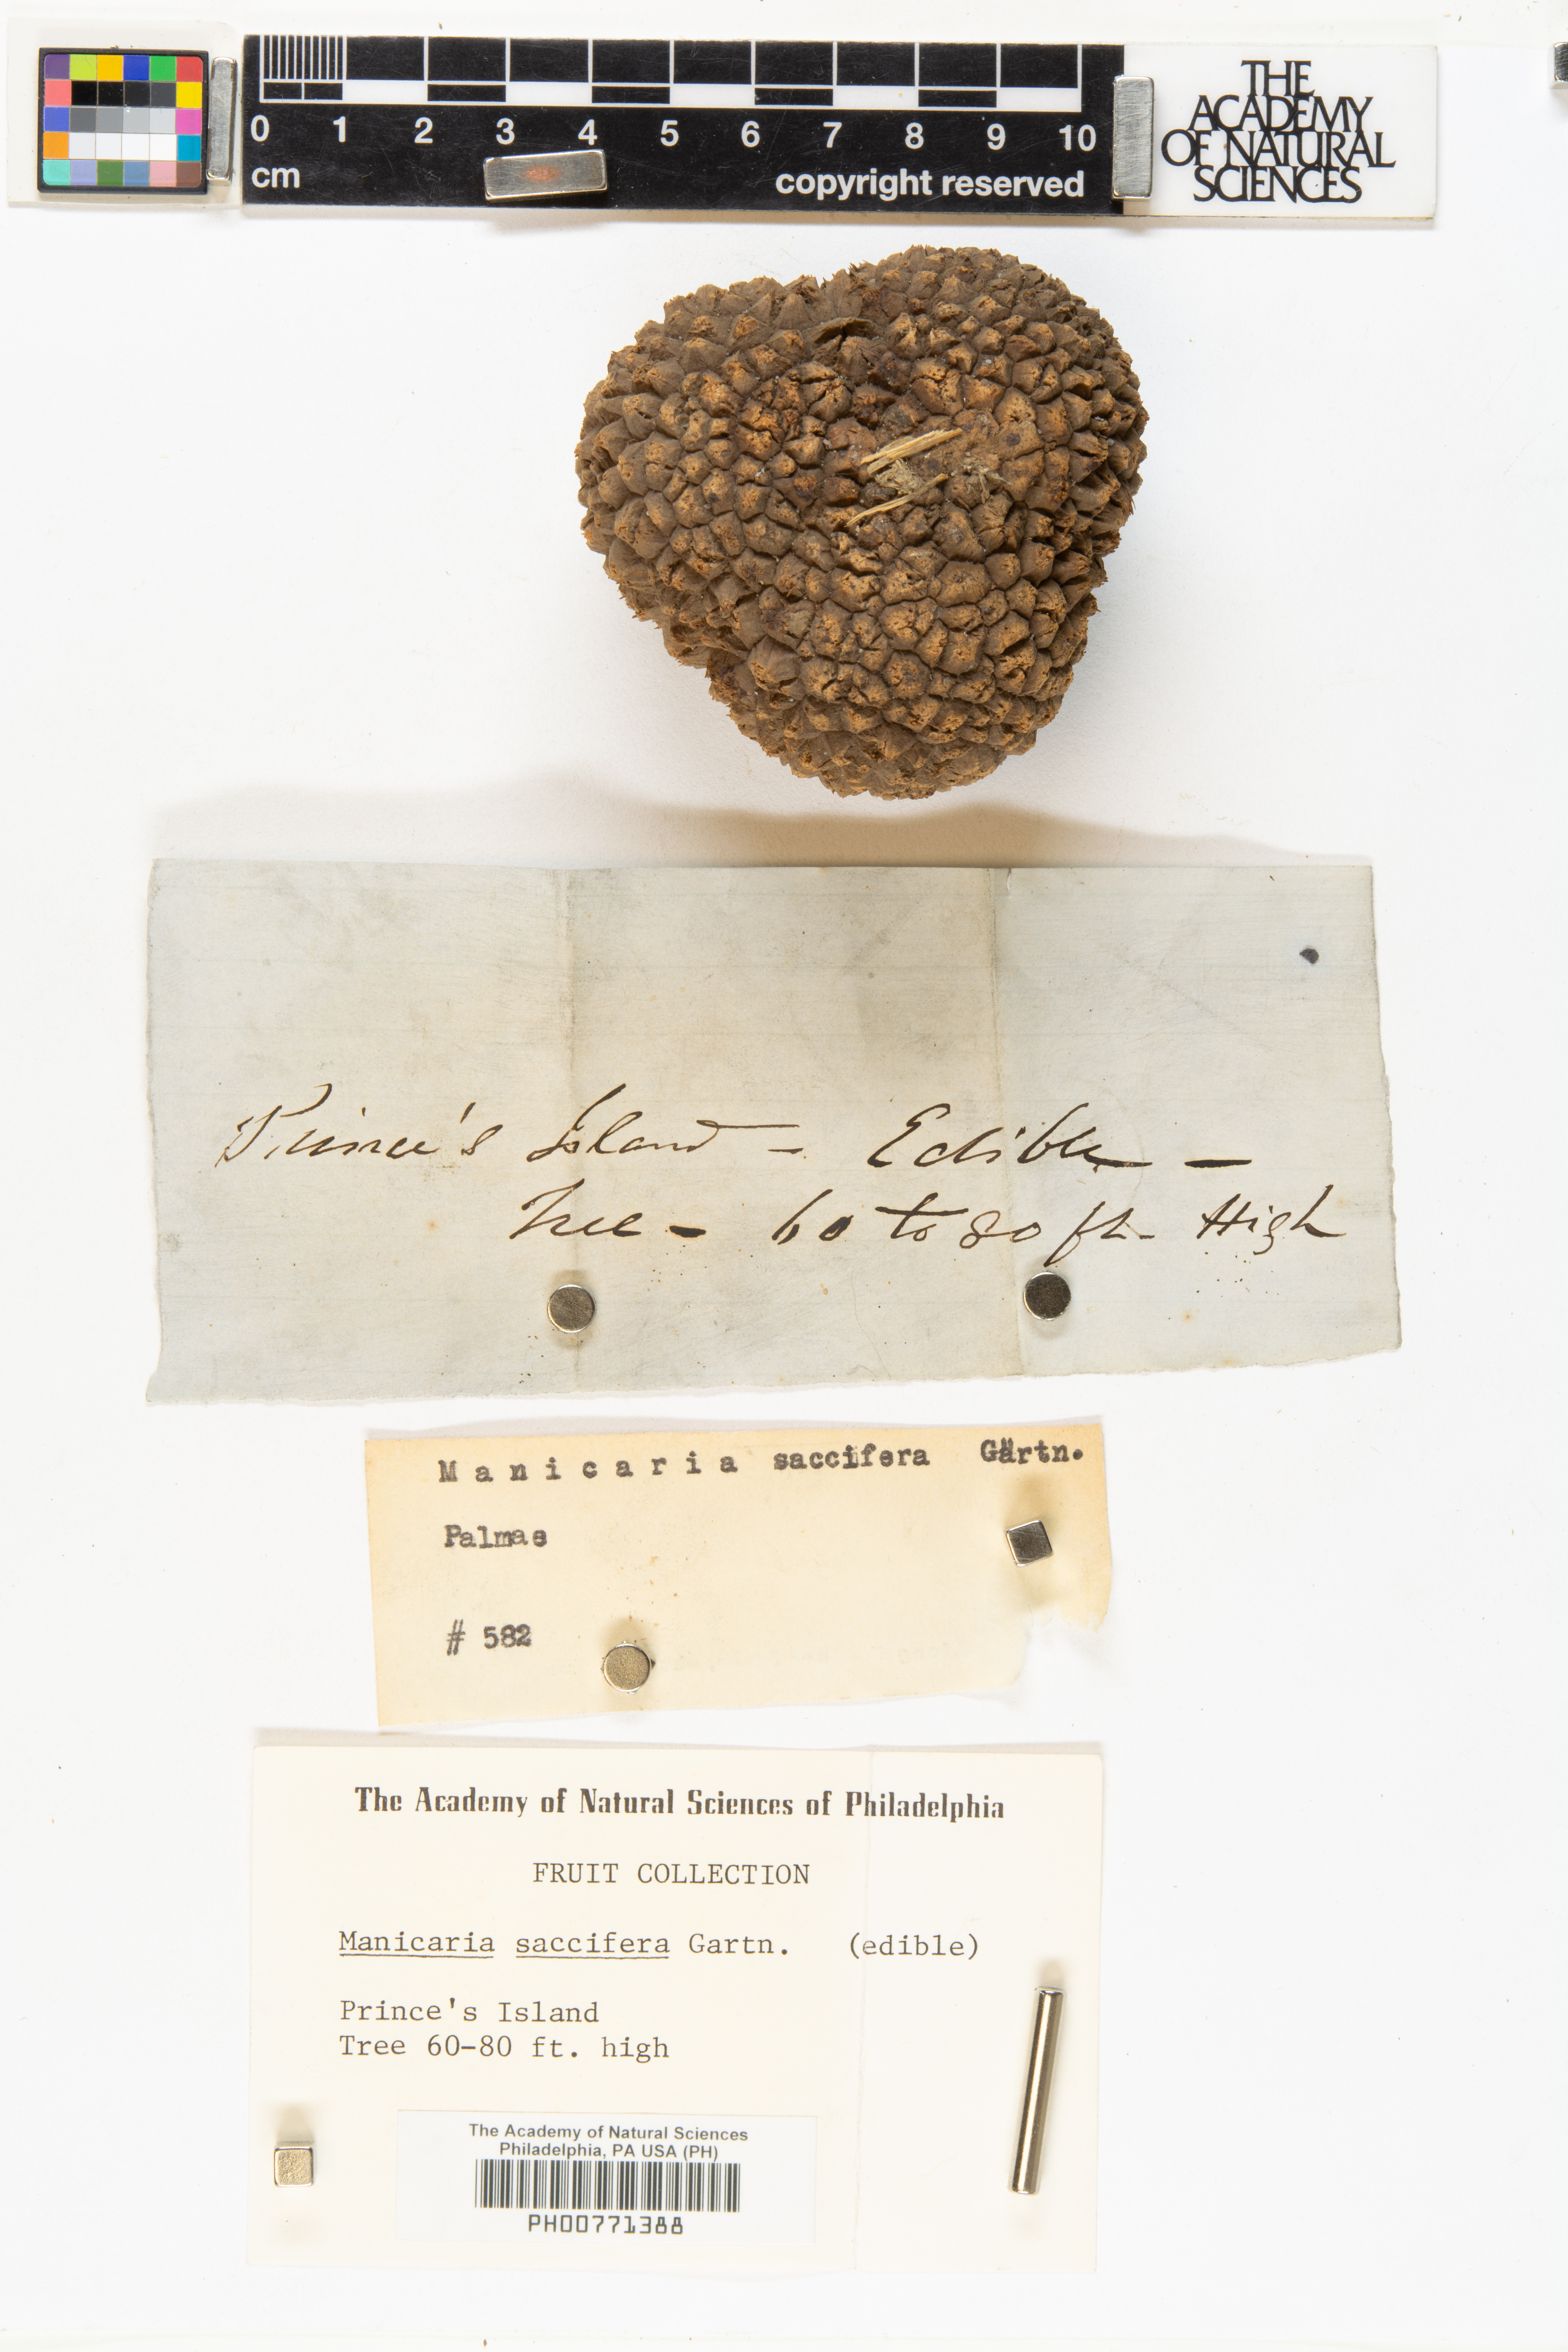 0 1 2 3 4 5 6 7 8 9 10
cm
copyright reserved
THE
ACADEMY
OF NATURAL
SCIENCES
Prince's Island – Edible –
Tree – 60 to 80 ft. High
Manicaria saccifera Gärtn.
Palmae
# 582
The Academy of Natural Sciences of Philadelphia
FRUIT COLLECTION
Manicaria saccifera Gartn. (edible)
Prince's Island
Tree 60-80 ft. high
The Academy of Natural Sciences
Philadelphia, PA USA (PH)
PH00771388